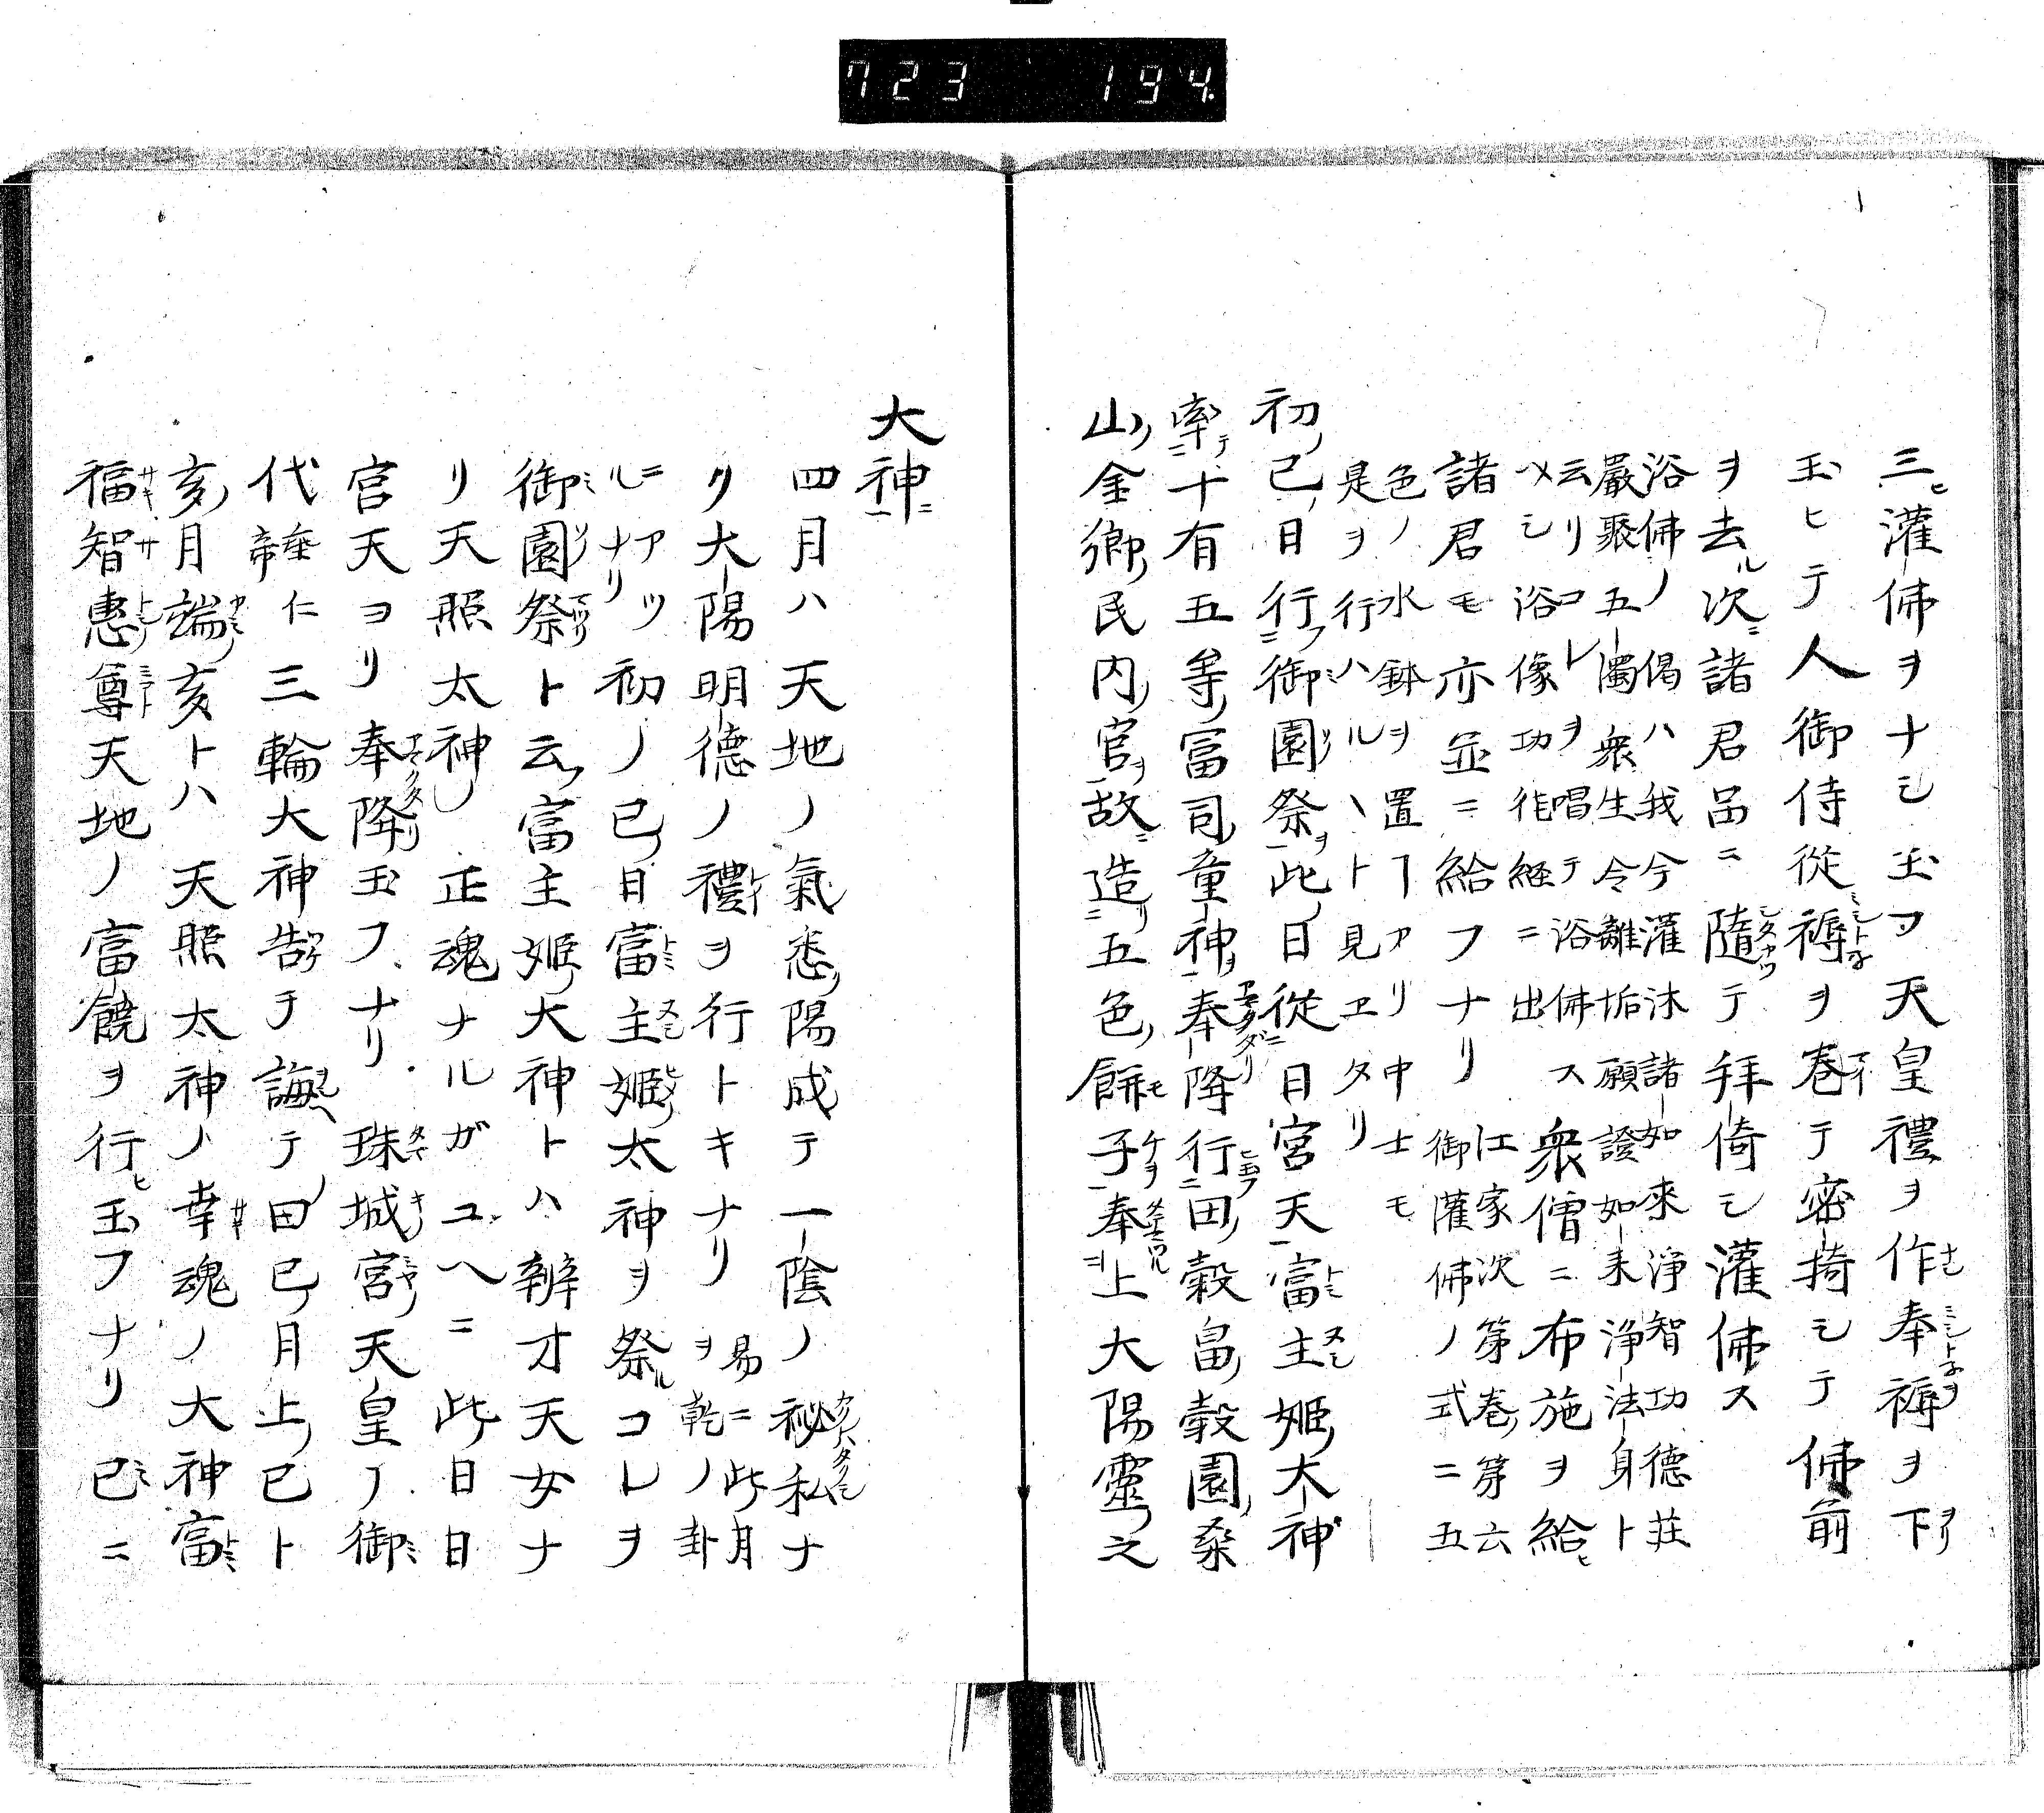 723 194
三灌佛ヲナシ玉フ天皇禮ヲ作奉褥ヲ下
玉ヒテ人御侍從褥ヲ巻テ密掎シテ佛前
ヲ去ル次ニ諸君臣ニ隨テ拜倚シ灌佛ス
浴佛ノ偈ハ我今灌沐諸如來淨智功德莊
嚴聚五濁衆生令離垢願證如来淨法身ト
云リコレヲ唱テ浴佛ス衆僧ニ布施ヲ給ヒ
メシ浴像功德経ニ出
諸君モ亦並ニ給フナリ江家次第巻第六
御灌佛ノ式ニ五
色ノ水鉢ヲ置ヿアリ中士モ
是ヲ行ハルヽト見ヱタリ
初ノ已ノ日行フ御園祭ヲ此ノ日從日宮天富主姫大神
率テ十有五等ノ富司童神ヲ奉降行田ノ穀畠ノ穀園ノ桑
山ノ金鄉ノ民内ノ官ヲ故ニ造リ五色ノ餅子ヲ奉上大陽靈之
大神ニ
四月ハ天地ノ氣悉ノ陽成テ一陰ノ祕私ナ
ク大陽明德ノ禮ヲ行トキナリ易ニ此月
ヲ乾ノ卦
ニアツ
ルナリ初ノ已ノ日富主姫太神ヲ祭ルコレヲ
御園祭ト云フ富主姬大神トハ辨才天女ナ
リ天照太神ノ正魂ナルガユヘニ此日日
宮天ヨリ奉降玉フナリ珠城宮天皇ノ御
代垂仁帝三輪大神告テ誨テ田已月上已ト
亥月端亥トハ天照太神ノ幸魂ノ大神富
福智惠尊天地ノ富饒ヲ行ヒ玉フナリ已ニ